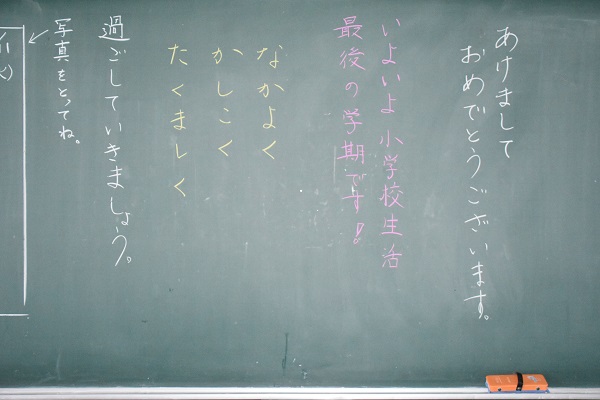 あけまして
おめでとうございます。
いよいよ小学校生活
最後の学期です!
なかよく
かしこく
たくましく
過ごしていきましょう。
写真をとってね。